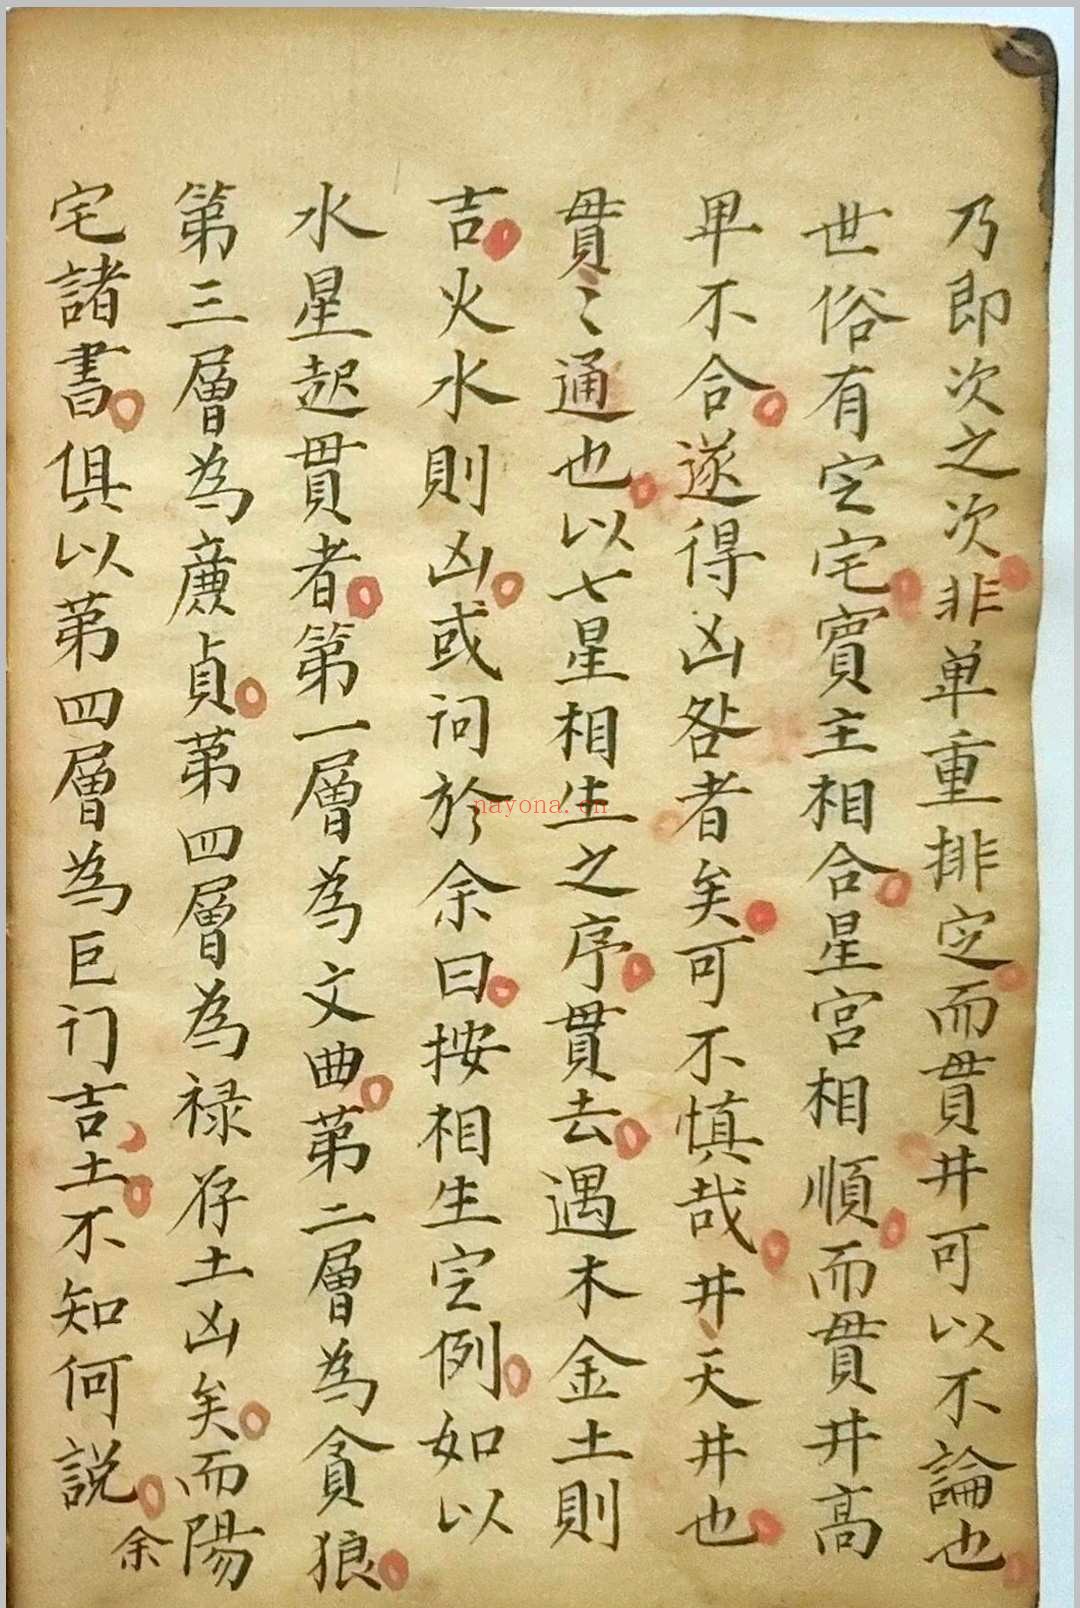 乃即次之次非单重排定而貫井可以不論也
世俗有定宅賓主相合星宮相順而貫井高
卑不合遂得凶咎者矣可不慎哉井天井也
貫之通也以七星相生之序貫去遇木金土則
吉火水則凶或问於余曰按相生定例如以
水星起貫者第一層為文曲第二層為貪狼
第三層為廉貞第四層為禄存土凶矣而陽
宅諸書俱以第四層為巨门吉土不知何説
余
nayona.cn